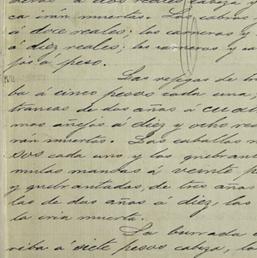 ca irán muertas. Las cabras
á doce reales; los carneros y
á diez reales; las carneras y ca
jos á peso.
Las rejegas de
ba á cinco pesos cada una,
trancas de dos años á cuat
mos añejos á diez y ocho rea
rán muertos. Los caballos m
sos cada uno y los quebrant
mulas mansas á veinte p
y quebrantadas, de tres años
las de dos años á diez, las
la cria muerta.
La burrada
riba á siete pesos cabeza, la